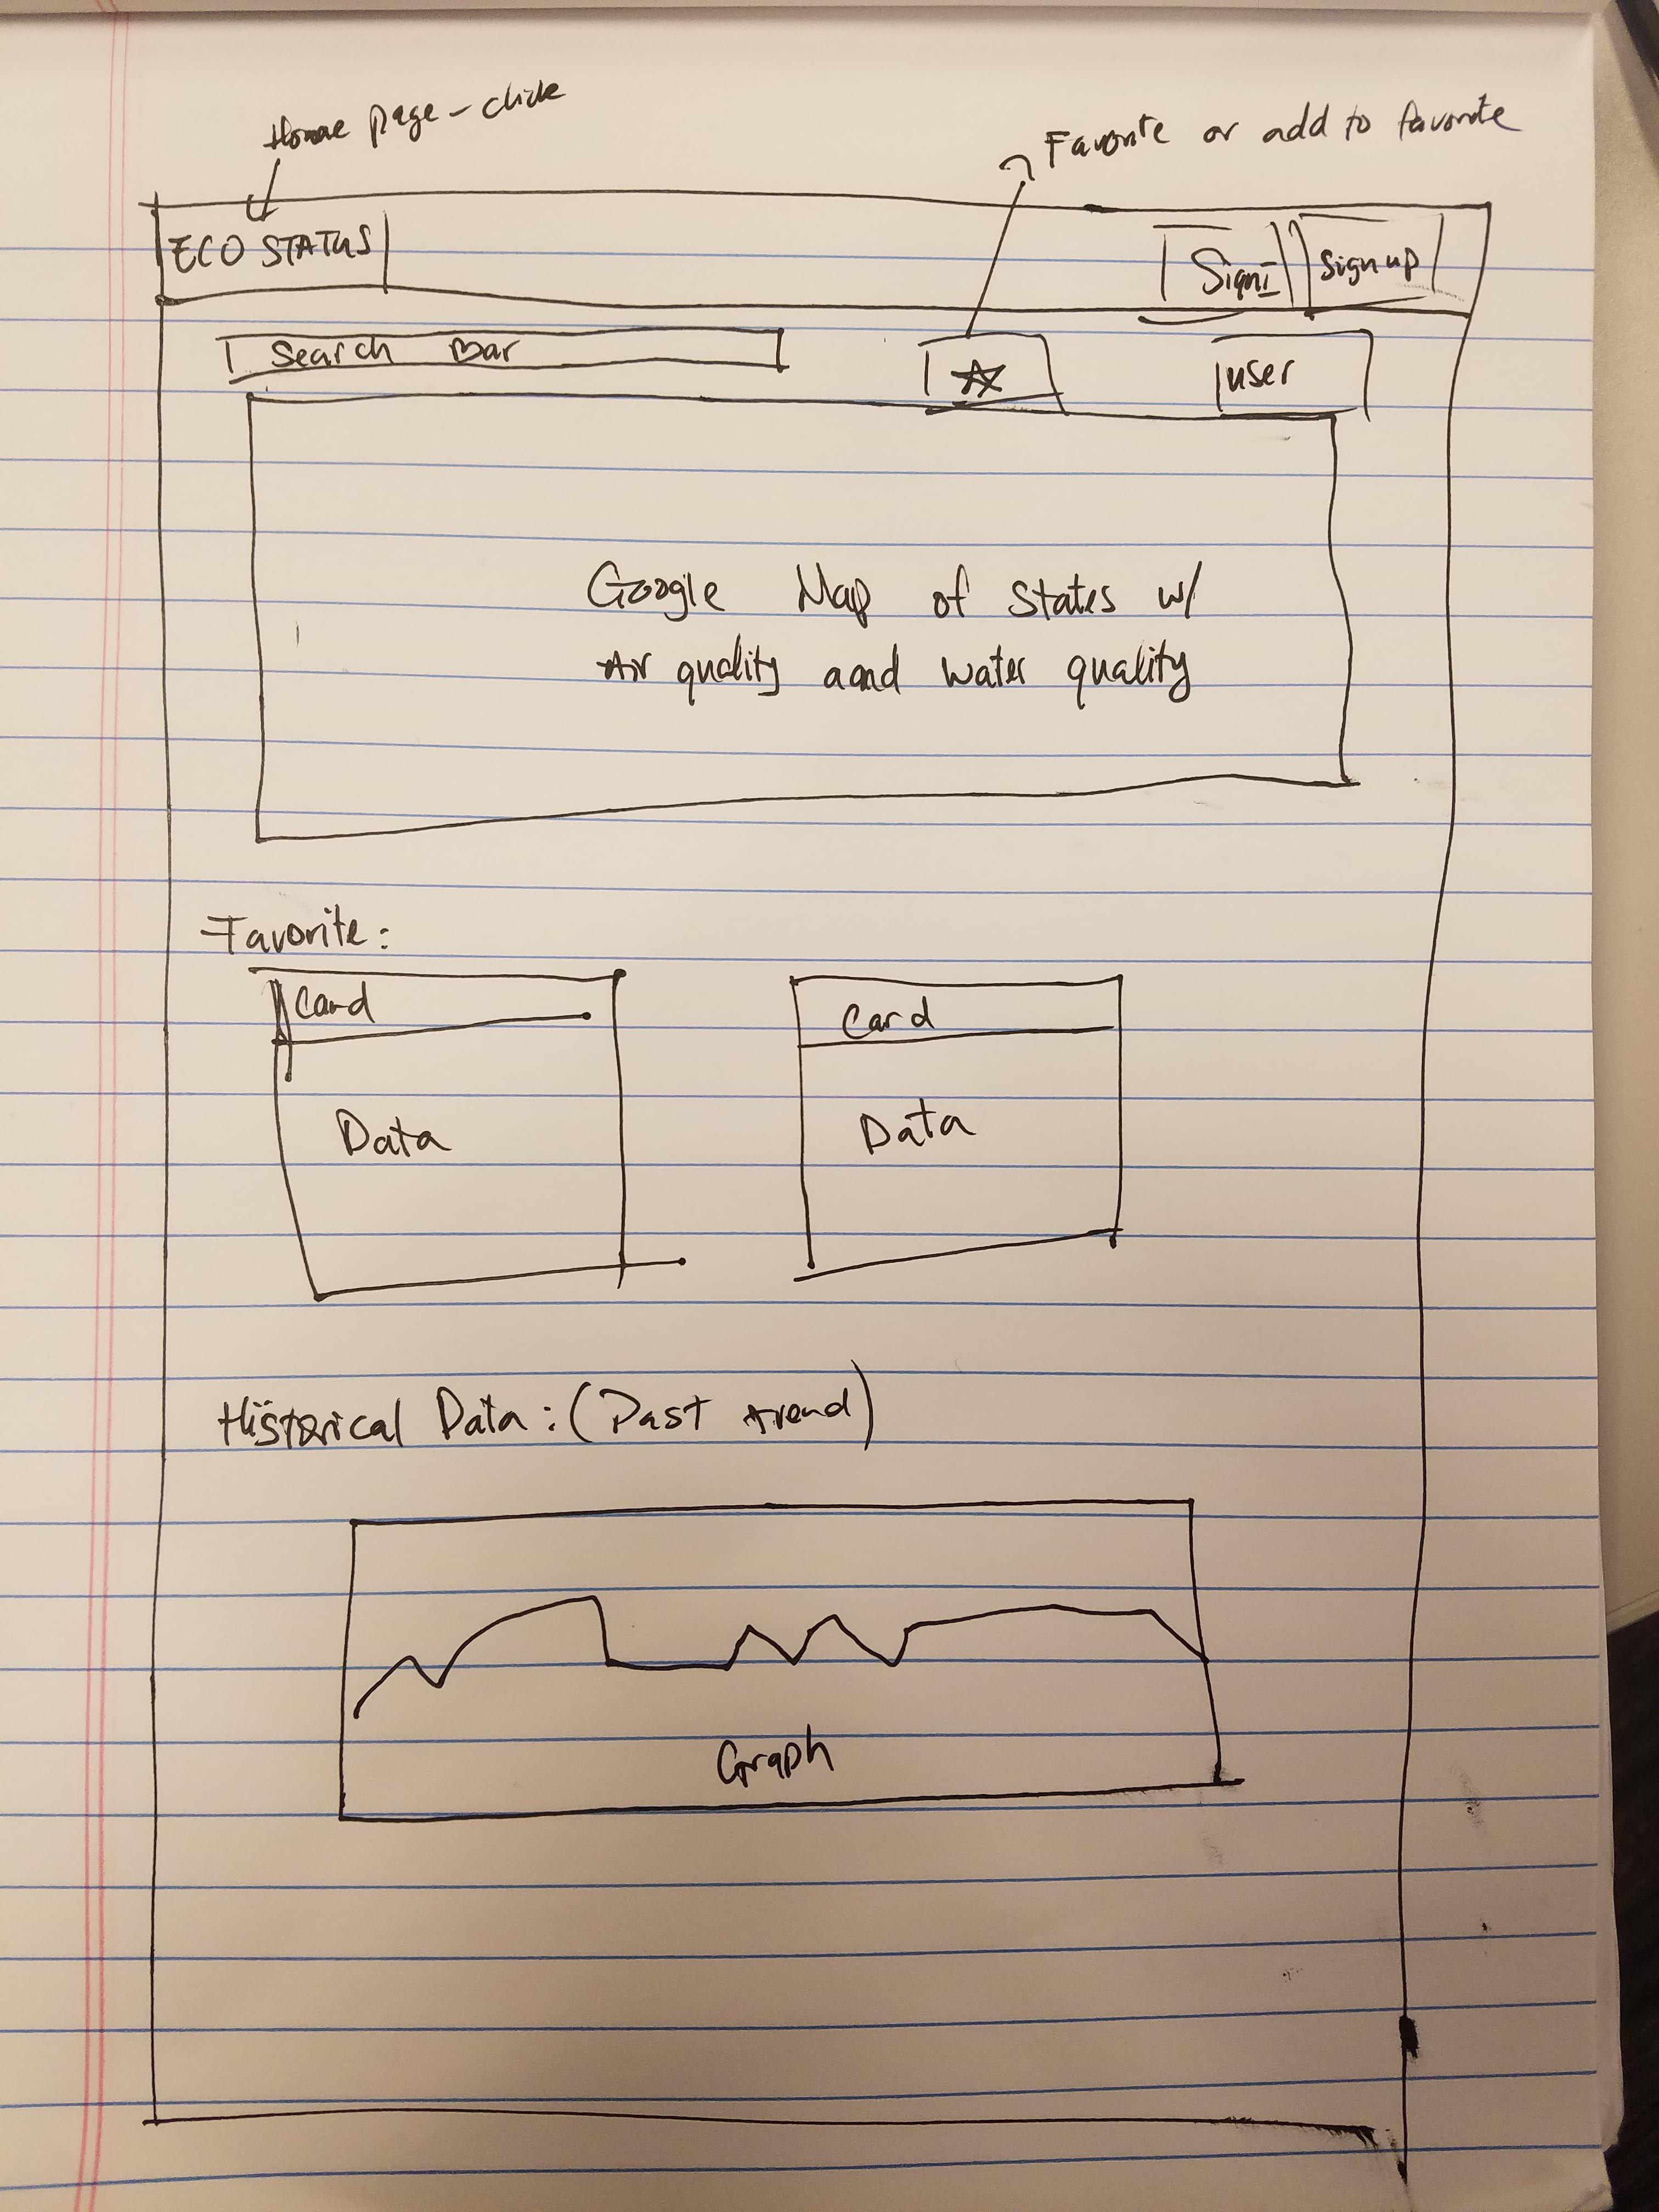 Home page - click
Favorite or add to favorite
ECO STATUS
Sign I
Sign up
Search Bar
user
Google Map of States w/
Air quality aand water quality
Favorite:
Card
Card
Data
Data
Historical Data: (Past trend)
Graph